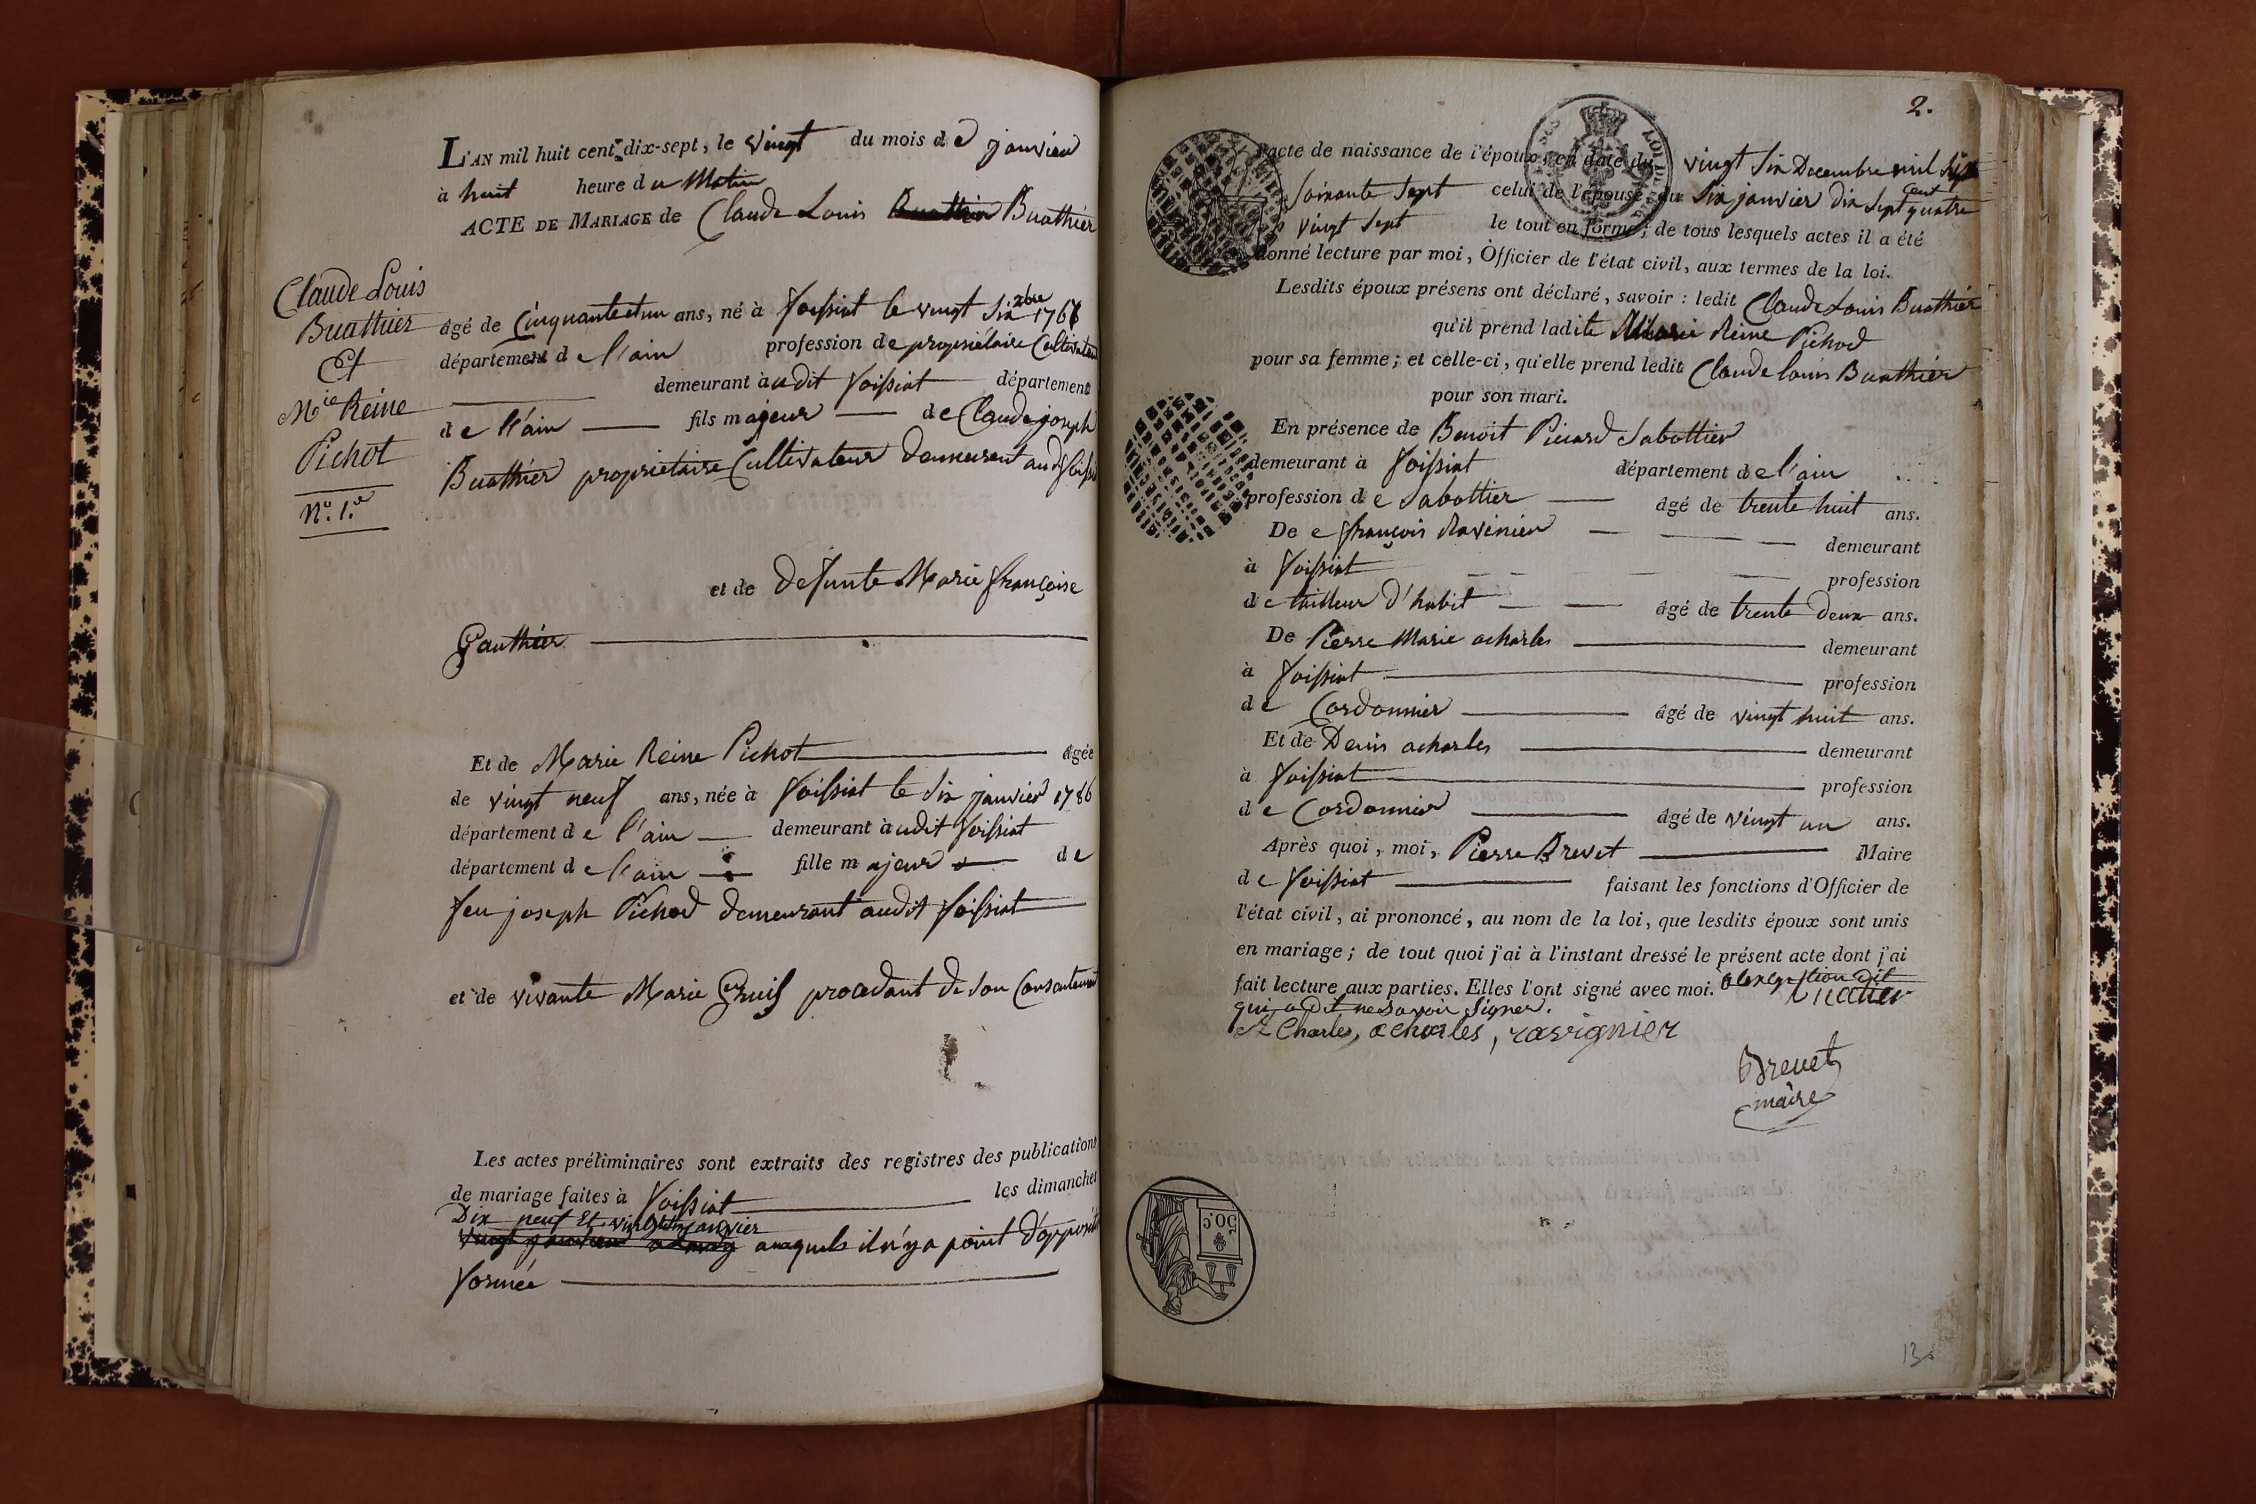 L'AN mil huit cent dix-sept, le vingt du mois de janvier
à huit heure du Matin
ACTE DE MARIAGE de Claude Louis Buathier
Claude Louis
Buathier
Et
Mie Reine
Pichot
No. 1.er
âgé de Cinquante et un ans, né à foissiat le vingt Six xbre 1768
département de l'ain profession de propriétaire Cultivateur
demeurant à udit foissiat département
de l'ain fils majeur de Claude joseph
Buathier propriétaire Cultivateur demeurant audt foissiat
et de defunte Marie françoise
Gauthier
Et de Marie Reine Pichot âgée
de vingt neuf ans, née à foissiat le Six janvier 1786
département de l'ain demeurant à udit foissiat
département de l'ain fille majeur de
feu joseph Pichod demeurant audit foissiat
et de vivante Marie procedant de Son Consentement
Les actes préliminaires sont extraits des registres des publications
de mariage faites à foissiat les dimanches
Dix neuf Et janvier
auxquels il n'y a point d'opposition
formée
2.
l'acte de naissance de l'époux, en date du vingt Six Decembre mil Sept
Soixante Sept celui de l'épouse, du Six janvier dix Sept cent quatre
vingt Sept le tout en forme; de tous lesquels actes il a été
donné lecture par moi, Officier de l'état civil, aux termes de la loi.
Lesdits époux présens ont déclaré, savoir: ledit Claude Louis Buathier
qu'il prend ladite Marie Reine Pichod
pour sa femme; et celle-ci, qu'elle prend ledit Claude louis Buathier
pour son mari.
En présence de Benoit Picard Sabottier
demeurant à foissiat département de l'ain
profession de Sabottier âgé de trente huit ans.
De françois Ravinier demeurant
à foissiat profession
de tailleur d'habit âgé de trente deux ans.
De Pierre Marie acharles demeurant
à foissiat profession
de Cordonnier âgé de vingt huit ans.
Et de Denis acharles demeurant
à foissiat profession
de Cordonnier âgé de vingt un ans.
Après quoi, moi, Pierre Brevet Maire
de foissiat faisant les fonctions d'Officier de
l'état civil, ai prononcé, au nom de la loi, que lesdits époux sont unis
en mariage; de tout quoi j'ai à l'instant dressé le présent acte dont j'ai
fait lecture aux parties. Elles l'ont signé avec moi.
qui a dit ne Savoir Signer.
Charles, acharles, ravignier
Brevet
maire
50 C.
13